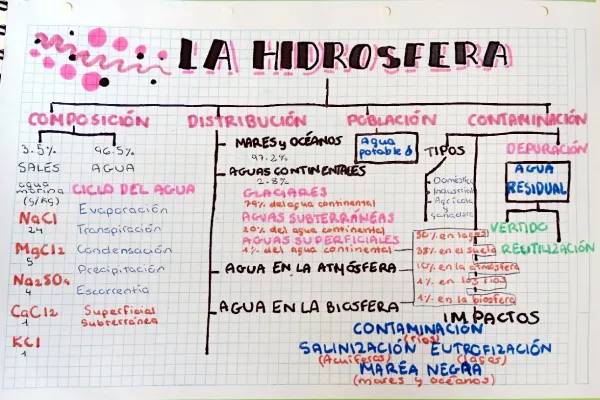 LA HIDROSFERA
COMPOSICIÓN
3.5% 96.5%
SALES AGUA
agua marina (g/kg)
CICLO DEL AGUA
NaCl
24
MgCl2
5
Na2SO4
4
CaCl2
1
KCl
1
Evaporación
Transpiración
Condensación
Precipitación
Escorrentia
Superficial
Subterránea
DISTRIBUCIÓN
MARES y OCÉANOS
97.2%
AGUAS CONTINENTALES
2.8%
GLACIARES
79% del agua continental
AGUAS SUBTERRÁNEAS
20% del agua continental
AGUAS SUPERFICIALES
1% del agua continental
50% en lagos
38% en el suelo
10% en la atmósfera
1% en los rios
1% en la biosfera
AGUA EN LA ATMÓSFERA
AGUA EN LA BIOSFERA
POBLACIÓN
Agua
potable
CONTAMINACIÓN
TIPOS
Doméstica
Industrial
Agrícola y
ganadera
DEPURACIÓN
AGUA
RESIDUAL
VERTIDO
REUTILIZACIÓN
IMPACTOS
CONTAMINACIÓN
(rios)
SALINIZACIÓN EUTROFIZACIÓN
(Acuíferos) (lagos)
MAREA NEGRA
(mares y océanos)